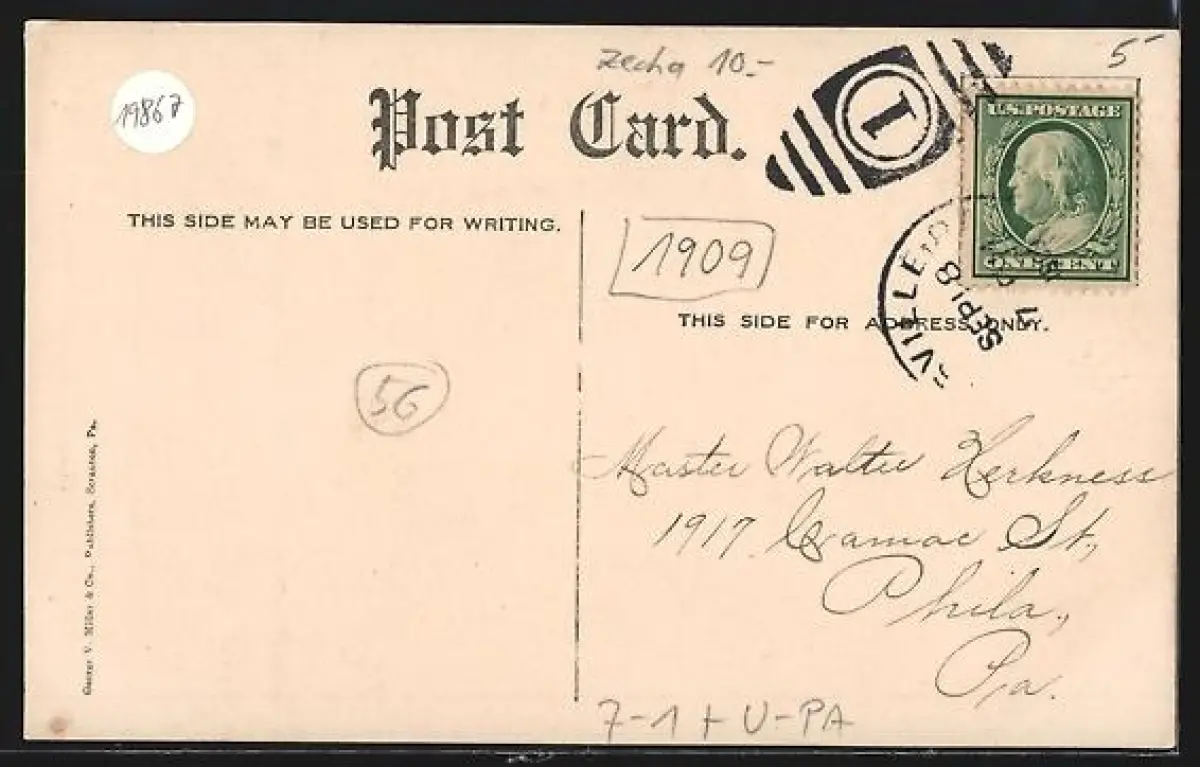 zecha 10.-
5-
19867
Post Card.
1
U.S. POSTAGE
ONE CENT
THIS SIDE MAY BE USED FOR WRITING.
1909
VILLE
SEP 18
THIS SIDE FOR ADDRESS ONLY.
56
Master Walter Herkness
1917 Camac St,
Phila.,
Pa.
George V. Millar & Co., Publishers, Scranton, Pa.
7-1 + U-PA